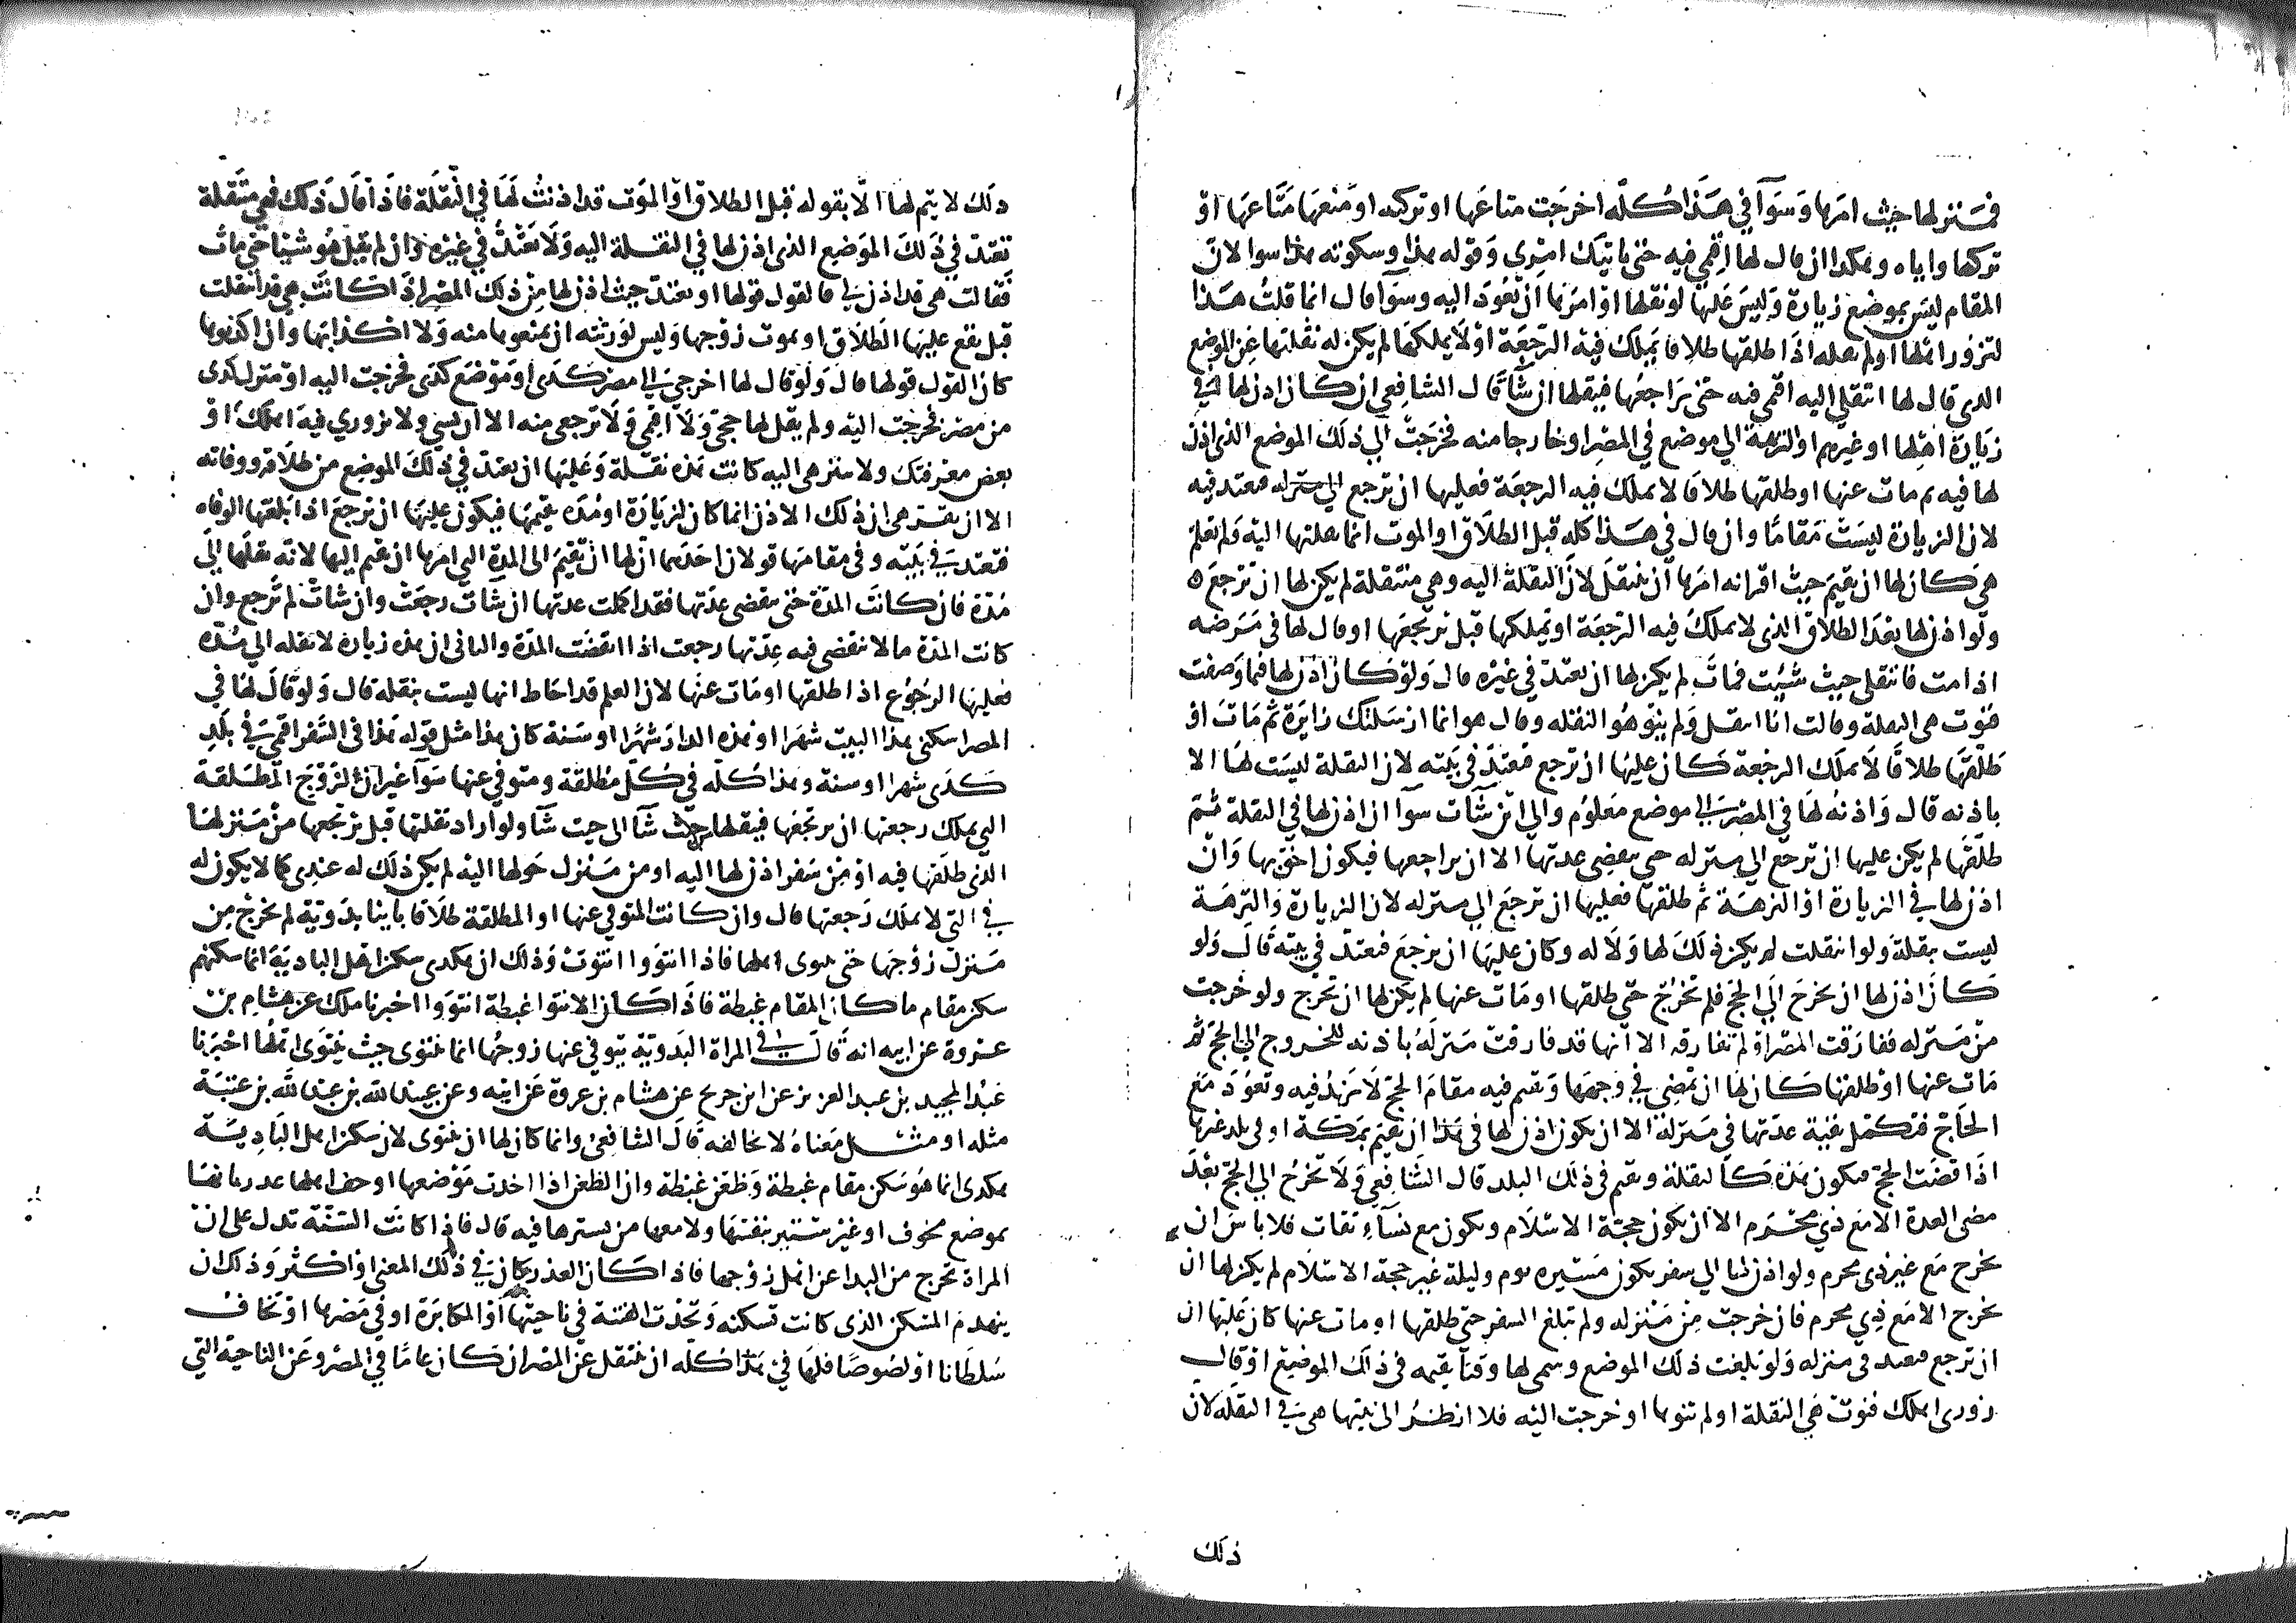 فمنزلها حيث امرها وسوآ في هذا كله اخرجت متاعها او تركته او منعها متاعها او
تركها واياه وهكذا ان قال لها اقيمي فيه حتى ياتيك امري وقوله هذا وسكوته هذا سوا لان
المقام ليس بموضع زيارة وليس عليها لو نقلها او امرها ان تعود اليه وسوآ قال انما قلت هذا
لتزور اهلها او لم يقله اذا طلقها طلاقا يملك فيه الرجعة او لا يملكها لم يكن له نقلتها عن الموضع
الذي قال لها انتقلي اليه اقيمي فيه حتى يراجعها فينقلها ان شآ قال الشافعي ان كان اذن لها في
زيارة اهلها او غيرهم او النزهة الي موضع في المصر او خارجا منه فخرجت الي ذلك الموضع الذي اذن
لها فيه ثم مات عنها او طلقها طلاقا لا يملك فيه الرجعة فعليها ان ترجع الي منزله فتعتد فيه
لان الزيارة ليست مقاما وان قال في هذا كله قبل الطلاق او الموت انما نقلتها اليه ولم تعلم
هي كان لها ان تقيم حيث اقرانه امرها ان تنتقل لان النقلة اليه وهي منتقلة لم يكن لها ان ترجع ه
ولو اذن لها بعد الطلاق الذي لا يملك فيه الرجعة او يملكها قبل ترتجعها او قال لها في مرضه
اذا مت فانتقلي حيث شئت فمات لم يكن لها ان تعتد في غيره قال ولو كان اذن لها فيما وصفت
فنوت هي النقلة وقالت انا انتقل ولم ينو هو النقله وقال هو انما ارسلتك زايرة ثم مات او
طلقها طلاقا لا يملك الرجعة كان عليها ان ترجع فتعتد في بيته لان النقلة ليست لها الا
باذنه قال واذنه لها في المصر الي موضع معلوم والي اين شآت سوآ ان اذن لها في النقلة ثم
طلقها لم يكن عليها ان ترجع الي منزله حتى تنقضي عدتها الا ان يراجعها فيكون احق بها وان
اذن لها في الزيارة او النزهة ثم طلقها فعليها ان ترجع الي منزله لان الزيارة والنزهة
ليست بنقلة ولو انتقلت لم يكن ذلك لها ولا له وكان عليها ان ترجع فتعتد في بيته قال ولو
كان اذن لها ان تخرج الي الحج فلم تخرج حتى طلقها او مات عنها لم يكن لها ان تخرج ولو خرجت
من منزله ففارقت المصر او لم تفارقه الا انها قد فارقت منزله باذنه للخروج الي الحج ثم
مات عنها او طلقها كان لها ان تمضي في وجهها وتقيم فيه مقام الحج لا تزيد فيه وتعود مع
الحاج فتكمل بقية عدتها في منزله الا ان يكون اذن لها في هذا ان تقيم بمكة او في بلد غيرها
اذا قضت الحج فتكون هذه كالنقلة وتقيم في ذلك البلد قال الشافعي ولا تخرج الي الحج بعد
مضي العدة الا مع ذي محرم الا ان يكون حجة الاسلام وتكون مع نسآء ثقات فلا باس ان
تخرج مع غير ذي محرم ولو اذن لها الي سفر يكون مسيره يوم وليلة غير حجة الاسلام لم يكن لها ان
تخرج الا مع ذي محرم فان خرجت من منزله ولم تبلغ السفر حتى طلقها او مات عنها كان عليها ان
ان ترجع فتعتد في منزله ولو بلغت ذلك الموضع وسمى لها وقتا يقيمه في ذلك الموضع او قال
زوري اهلك فنوت هي النقلة او لم تنوها او خرجت اليه فلا انظر الى نيتها هي في النقله لان
ذلك
ذلك لا يتم لها الا بقوله قبل الطلاق او الموت قد اذنت لها في النقلة فاذا قال ذلك فهي منتقلة
تعتد في ذلك الموضع الذي اذن لها في النقلة اليه ولا تعتد في غيره وان لم يقل هو شيئا حتى مات
فقالت هي قد اذن لي فالقول قولها او تعتد حيث اذن لها من ذلك المصر اذا كانت هي قد انتقلت
قبل يقع عليها الطلاق او يموت زوجها وليس لورثته ان يمنعوها منه ولا اكذابها وان اكذبوها
كان القول قولها قال ولو قال لها اخرجي الى مصر كذى او موضع كذى فخرجت اليه او منزل كذى
من مصر فخرجت اليه ولم يقل لها حجي ولا اقيمي ولا ترجعي منه الا ان تشي ولا تزوري فيه اهلك او
بعض معرفتك ولا تتنزهي اليه كانت هذه نقلة وعليها ان تعتد في ذلك الموضع من طلاقه ووفاته
الا ان تقر هي ان ذلك الاذن انما كان لزيارة او مدة تقيمها فيكون عليها ان ترجع اذا بلغتها الوفاه
فتعتد في بيته وفي مقامها قولان احدهما ان لها ان تقيم الى المدة التي امرها ان تقيم اليها لانه نقلها الي
مدة فان كانت المدة حتى تنقضي عدتها فقد اكملت عدتها ان شآت رجعت وان شات لم ترجع وان
كانت المدة ما لا تنقضي فيه عدتها رجعت اذا انقضت المدة والثاني ان هذه زيارة لا نقله الي مدة
فعليها الرجوع اذا طلقها او مات عنها لان العلم قد احاط انها ليست بنقلة قال ولو قال لها في
المصر اسكني هذا البيت شهرا او هذه الدار شهرا او سنة كان هذا مثل قوله هذا في السفر اقيمي في بلد
كذى شهرا او سنة وهذا كله في كل مطلقة ومتوفي عنها سوآ غير ان لزوج المطلقة
التي يملك رجعتها ان يرتجعها فينقلها حيث شآ الى حيث شآ ولو اراد نقلتها قبل يرتجعها من منزلها
الذي طلقها فيه او من سفر اذن لها اليه او من منزل حولها اليه لم يكن ذلك له عندي كما لا يكون له
في التي لا يملك رجعتها قال وان كانت المتوفي عنها او المطلقة طلاقا باينا بدوية لم تخرج من
منزل زوجها حتى ينتوى اهلها فاذا انتووا انتوت وذلك ان هكذى سكن اهل البادية انما سكنهم
سكن مقام ما كان المقام غبطة فاذا كان الانتوا غبطة انتووا اخبرنا ملك عن هشام بن
عروة عن ابيه انه قال في المراة البدوية يتوفي عنها زوجها انما تنتوى حيث ينتوى اهلها اخبرنا
عبد المجيد بن عبد العزيز عن ابن جريج عن هشام بن عروة عن ابيه وعن عبيد الله بن عبد الله بن عتبة
مثله او مثل معناه لا يخالفه قال الشافعي وانما كان لها ان تنتوى لان سكن اهل البادية
هكذى انما هو سكن مقام غبطة وظعن غبطة وان الظعن اذا اجدب موضعها او خف اهلها عذر بانها
بموضع مخوف او غير مستتير بنفسها ولا معها من يسترها فيه قال فاذا كانت السنة تدل على ان
المراة تخرج من البدا عن اهل زوجها فاذا كان العذر كان في ذلك المعنى او اكثر وذلك ان
ينهدم المسكن الذي كانت تسكنه وتحدث الفتنة في ناحيتها او المكابرة او في مصرها او تخاف
سلطانا او لصوصا فلها في هذا كله ان تنتقل عن المصر ان كان عاما في المصر وعن الناحية التي